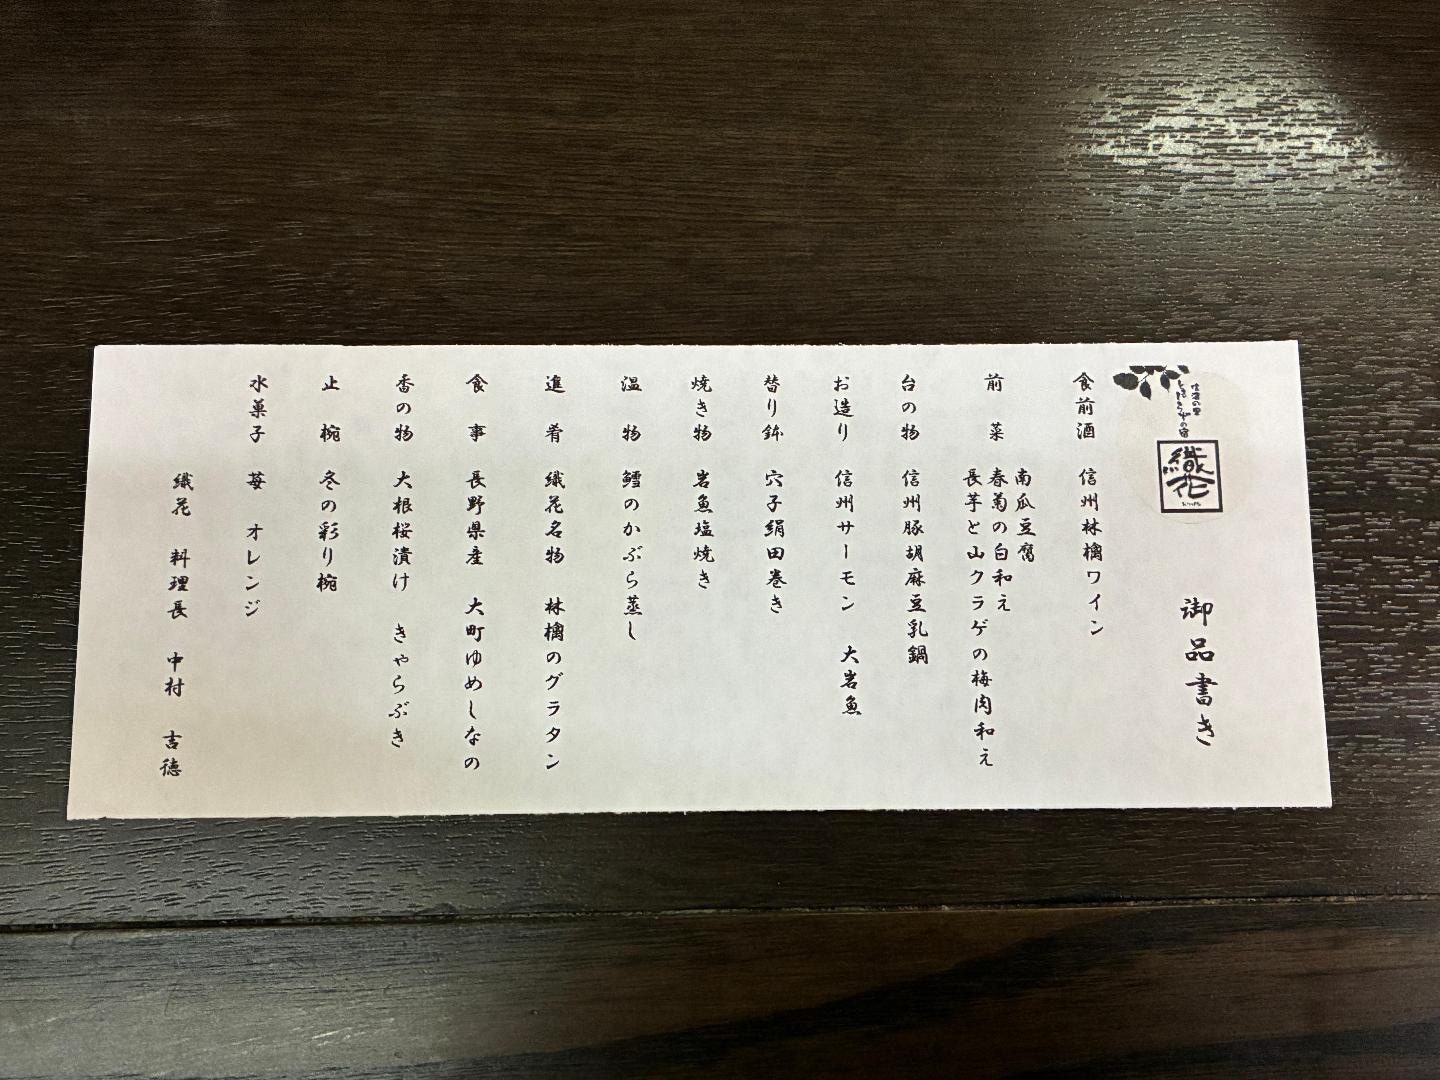 織花
御品書き
食前酒 信州林檎ワイン
前菜 南瓜豆腐
春菊の白和え
長芋と山クラゲの梅肉和え
台の物 信州豚胡麻豆乳鍋
お造り 信州サーモン 大岩魚
替り鉢 穴子絹田巻き
焼き物 岩魚塩焼き
温物 鱈のかぶら蒸し
進肴 織花名物 林檎のグラタン
食事 長野県産 大町ゆめしなの
香の物 大根桜漬け きゃらぶき
止椀 冬の彩り椀
水菓子 苺 オレンジ
織花 料理長 中村 吉徳